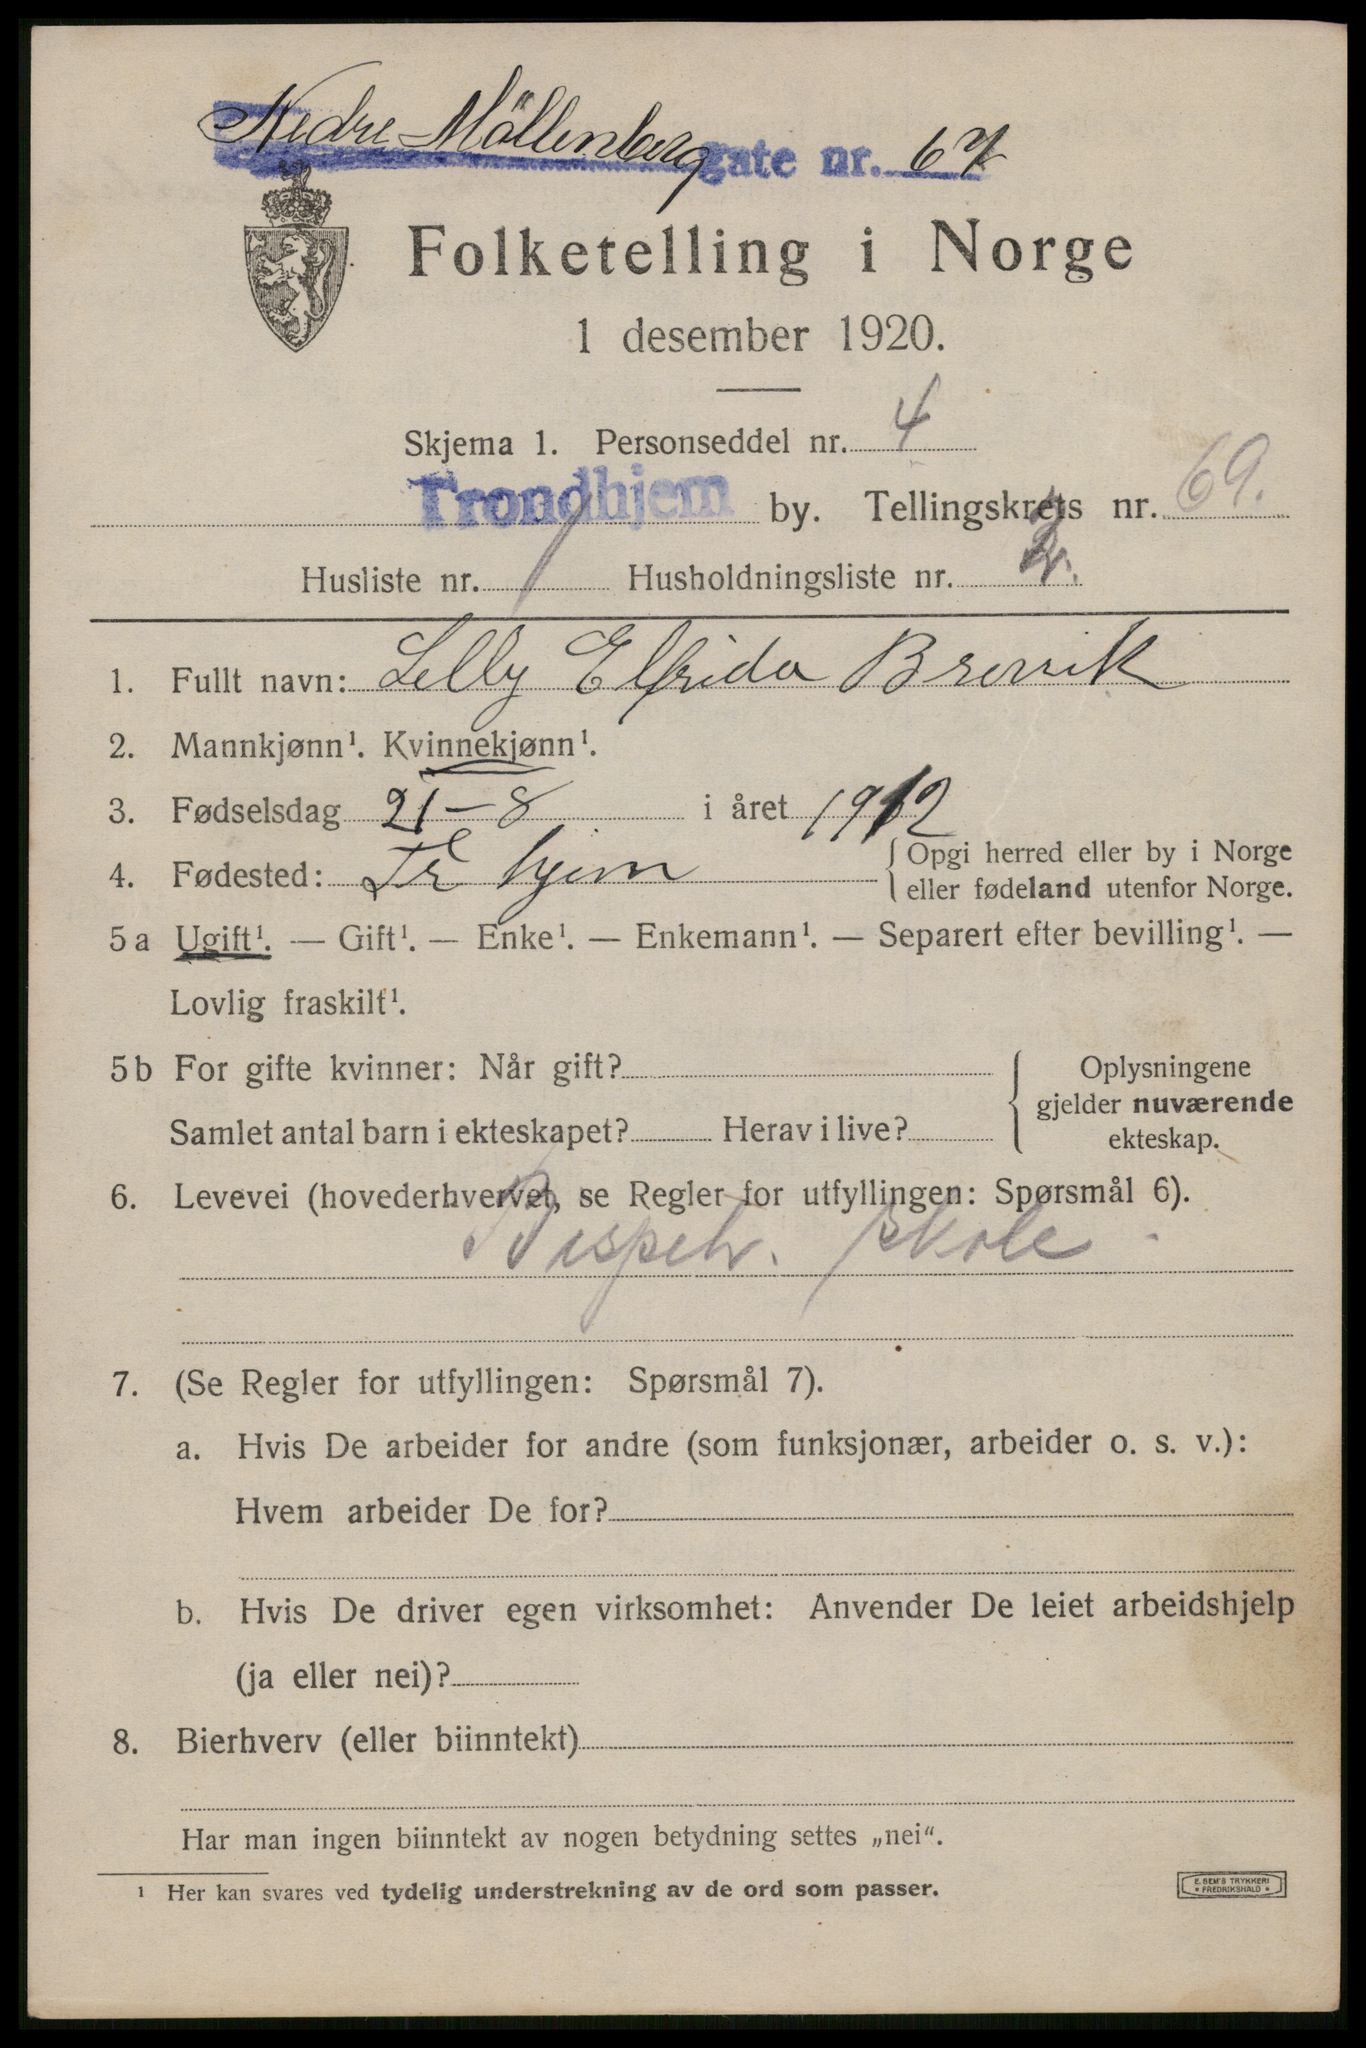 Nedre Möllenberg gate nr. 67
Folketelling i Norge
1 desember 1920.
Skjema 1. Personseddel nr. 4
Trondhjem by. Tellingskrets nr. 69.
Husliste nr. 1 Husholdningsliste nr.
1. Fullt navn: Lelly Elfrida Brevik
2. Mannkjønn¹. Kvinnekjønn¹.
3. Fødselsdag 21-8 i året 1912
4. Fødested: Trhjem {Opgi herred eller by i Norge
eller fødeland utenfor Norge.
5a Ugift¹. — Gift¹. — Enke¹. — Enkemann¹. — Separert efter bevilling¹. —
Lovlig fraskilt¹.
5b For gifte kvinner: Når gift? Oplysningene
gjelder nuværende
Samlet antal barn i ekteskapet? Herav i live? ekteskap.
6. Levevei (hovederhvervet, se Regler for utfyllingen: Spørsmål 6).
Bispeh. skole
7. (Se Regler for utfyllingen: Spørsmål 7).
a. Hvis De arbeider for andre (som funksjonær, arbeider o. s. v.):
Hvem arbeider De for?
b. Hvis De driver egen virksomhet: Anvender De leiet arbeidshjelp
(ja eller nei)?
8. Bierhverv (eller biinntekt)
Har man ingen biinntekt av nogen betydning settes „nei“.
¹ Her kan svares ved tydelig understrekning av de ord som passer.
E. SEM'S TRYKKERI
• FREDRIKSHALD •